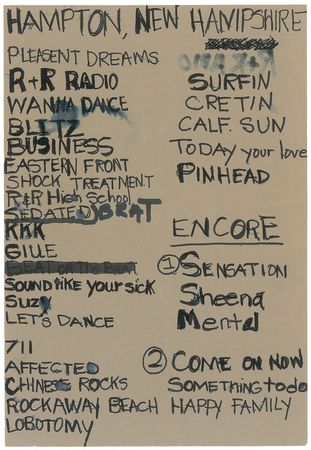 HAMPTON, NEW HAMIPSHIRE
PLEASENT DREAMS
R+R RADIO
WANNA DANCE
BLITZ
BUSINESS
EASTERN FRONT
SHOCK TREATMENT
R&R High School
SEDATED BRAT
KKK
GIUE
BEAT on the BRAT
SOUND like your sick
Suzy
LET'S DANCE
711
AFFECTED
CHINESE ROCKS
ROCKAWAY BEACH
LOBOTOMY
SURFIN
CRETIN
CALF. SUN
TODAY your love
PINHEAD
ENCORE
① SENSATION
Sheena
Mental
② COME ON NOW
SOMETHING to do
HAPPY FAMILY